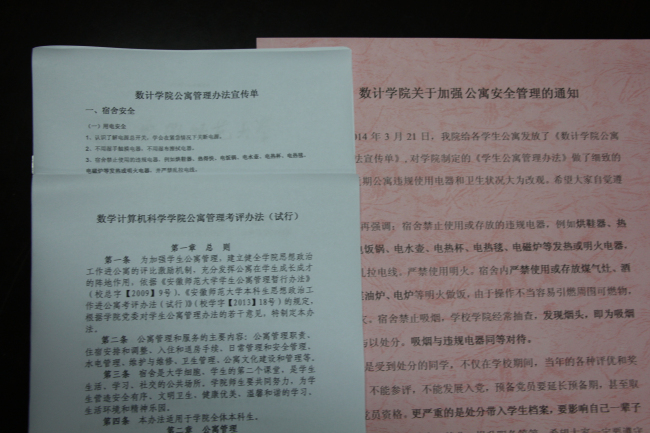 数计学院公寓管理办法宣传单
一、宿舍安全
（一）用电安全
1、认识了解电源总开关，学会在紧急情况下关断电源。
2、不用湿手触摸电器，不用湿布擦拭电器。
3、宿舍禁止使用的违规电器，例如烘鞋器、热得快、电饭锅、电水壶、电热杯、电热毯、
电磁炉等发热或明火电器，并严禁乱拉电线。
数学计算机科学学院公寓管理考评办法（试行）
第一章 总 则
第一条 为加强学生公寓管理，建立健全学院思想政治
工作进公寓的评比激励机制，充分发挥公寓在学生成长成才
的阵地作用，依据《安徽师范大学学生公寓管理暂行办法》
（校总字【2009】9号）、《安徽师范大学本科生思想政治工
作进公寓考评办法（试行）》（校学字【2013】18号）的规定，
根据学院党委对学生公寓管理办法的若干意见，特制定本办
法。
第二条 公寓管理和服务的主要内容：公寓管理职责、
住宿安排和调整、入住和退房手续、日常管理和安全管理、
水电管理、维护与维修、卫生管理、公寓文化建设和管理等。
第三条 宿舍是大学细胞，学生的第二个课堂，是学生
生活、学习、社交的公共场所。学院师生要共同努力，为学
生营造安全有序、文明卫生、健康优美、温馨和谐的学习、
生活环境和精神乐园。
第四条 本办法适用于学院全体本科生。
第二章 公寓管理
数计学院关于加强公寓安全管理的通知
014 年 3 月 21 日，我院给各学生公寓发放了《数计学院公寓
法宣传单》，对学院制定的《学生公寓管理办法》做了细致的
期公寓违规使用电器和卫生状况大为改观。希望大家自觉遵
再强调：宿舍禁止使用或存放的违规电器，例如烘鞋器、热
电饭锅、电水壶、电热杯、电热毯、电磁炉等发热或明火电器，
乱拉电线，严禁使用明火，宿舍内严禁使用或存放煤气灶、酒
煤油炉、电炉等明火做饭，由于操作不当容易引燃周围可燃物，
宿舍禁止吸烟，学校学院经常抽查，发现烟头，即为吸烟
与以处分，吸烟与违规电器同等对待。
是受到处分的同学，不仅在学校期间，当年的各种评优和奖
不能参评，不能发展入党，预备党员要延长预备期，甚至取
党员资格。更严重的是处分带入学生档案，要影响自己一辈子